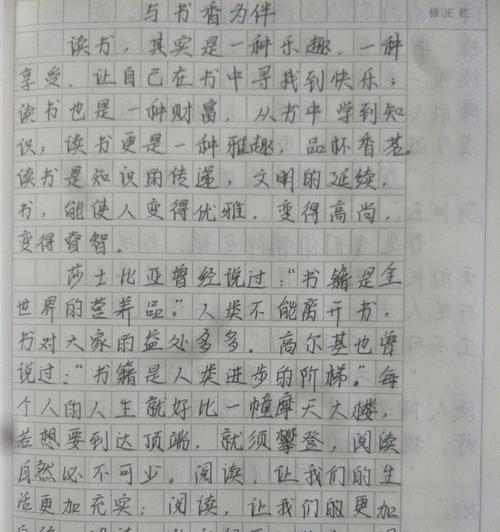 与书香为伴
修正栏
读书，其实是一种乐趣，一种
享受，让自己在书中寻找到快乐；
读书也是一种财富，从书中学到知
识；读书更是一种雅趣，品杯香茗。
读书是知识的传递，文明的延续，
书，能使人变得优雅，变得高尚，
变得睿智。
莎士比亚曾经说过：“书籍是全
世界的营养品。”人类不能离开书，
书对大家的益处多多。高尔基也曾
说过：“书籍是人类进步的阶梯。”每
个人的人生就好比一幢摩天大楼，
若想要到达顶端，就须攀登，阅读
自然必不可少。阅读，让我们的生
活更加充实；阅读，让我们的更加